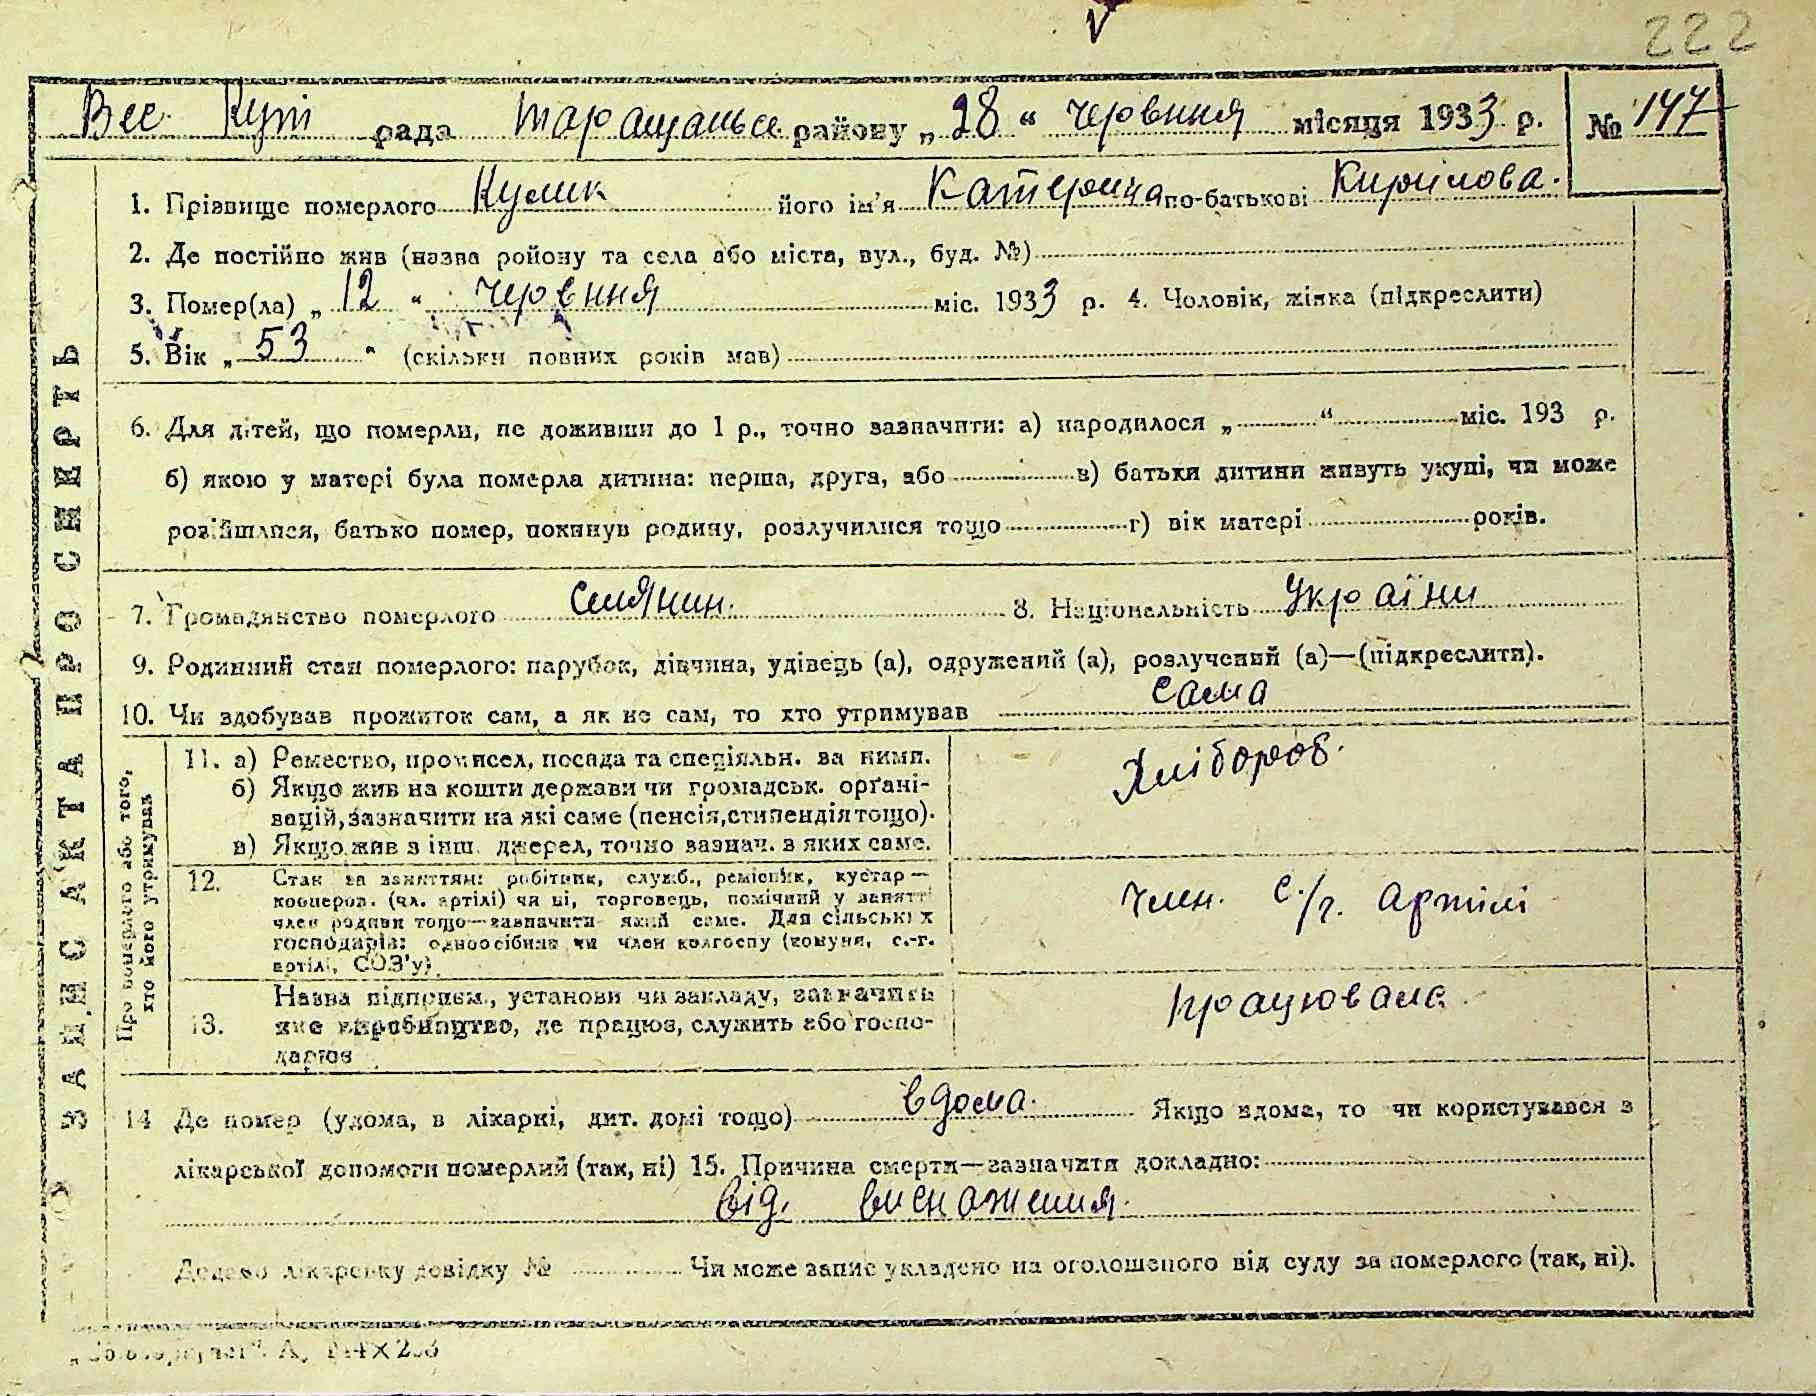 222
V
Вес. Кут рада Таращансь. району „28“ червння місяця 1933 р. № 147
1. Прізвище померлого Кулик його ім'я Катерина по-батькові Кирілова.
2. Де постійно жив (назва ройону та села або міста, вул., буд. №)
3. Помер(ла) „12“ червння міс. 1933 р. 4. Чоловік, жінка (підкреслити)
5. Вік „53“ (скільки повних років мав)
6. Для дітей, що померли, не доживши до 1 р., точно зазначити: а) народилося „ “ міс. 193 р.
б) якою у матері була померла дитина: перша, друга, або в) батьки дитини живуть укупі, чи може
розійшлися, батько помер, покинув родину, розлучилися тощо г) вік матері років.
7. Громадянство померлого селянин. 8. Національність України
9. Родинний стан померлого: парубок, дівчина, удівець (а), одружений (а), розлучений (а)—(підкреслити).
10. Чи здобував прожиток сам, а як не сам, то хто утримував сама
ЗАПИС АКТА ПРО СМЕРТЬ
Про померлого або того,
хто його утримував
11. а) Ремество, промисел, посада та спеціяльн. за ними.
б) Якщо жив на кошти держави чи громадськ. орґані-
зацій, зазначити на які саме (пенсія, стипендія тощо).
в) Якщо жив з інш. джерел, точно зазнач. з яких саме.
Хлібороб.
12. Стан за заняттям: робітник, служб., ремісник, кустар—
кооперов. (чл. артілі) чи ні, торговець, помічний у занятті
член родини тощо—зазначити який саме. Для сільських
господарів: одноосібник чи член колгоспу (комуни, с.-г.
артілі, СОЗ'у)
Член. с./г. артілі
13. Назва підприєм., установи чи закладу, зазначить
яке виробництво, де працює, служить або госпо-
дарює
працювала
14 Де помер (удома, в лікарні, дит. домі тощо) вдома. Якщо вдома, то чи користувався з
лікарської допомоги померлий (так, ні) 15. Причина смерти—зазначити докладно:
від. виснаження.
Додано лікарську довідку № Чи може запис укладено на оголошеного від суду за померлого (так, ні).